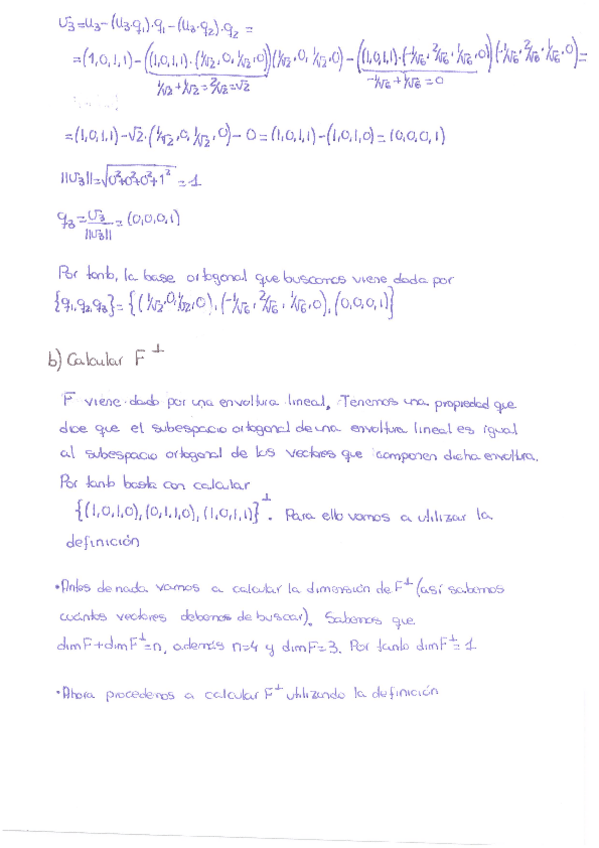 U₃=u₃-(u₃·q₁)·q₁-(u₃·q₂)·q₂=
=(1,0,1,1)-((1,0,1,1)·(1/√2,0,1/√2,0))(1/√2,0,1/√2,0)-((1,0,1,1)·(-1/√6,2/√6,1/√6,0))(-1/√6,2/√6,1/√6,0)=
1/√2+1/√2=2/√2=√2 -1/√6+1/√6=0
=(1,0,1,1)-√2·(1/√2,0,1/√2,0)-0=(1,0,1,1)-(1,0,1,0)=(0,0,0,1)
||U₃||=√0²+0²+0²+1²=1
q₃=U₃/||U₃||=(0,0,0,1)
Por tanto, la base ortogonal que buscamos viene dada por
{q₁,q₂,q₃}={(1/√2,0,1/√2,0),(-1/√6,2/√6,1/√6,0),(0,0,0,1)}
b) Calcular F⊥
F viene dado por una envoltura lineal. Tenemos una propiedad que
dice que el subespacio ortogonal de una envoltura lineal es igual
al subespacio ortogonal de los vectores que componen dicha envoltura.
Por tanto basta con calcular
{(1,0,1,0),(0,1,1,0),(1,0,1,1)}⊥. Para ello vamos a utilizar la
definición
•Antes de nada vamos a calcular la dimensión de F⊥ (así sabemos
cuántos vectores debemos de buscar). Sabemos que
dimF+dimF⊥=n, además n=4 y dimF=3. Por tanto dimF⊥=1
•Ahora procedemos a calcular F⊥ utilizando la definición